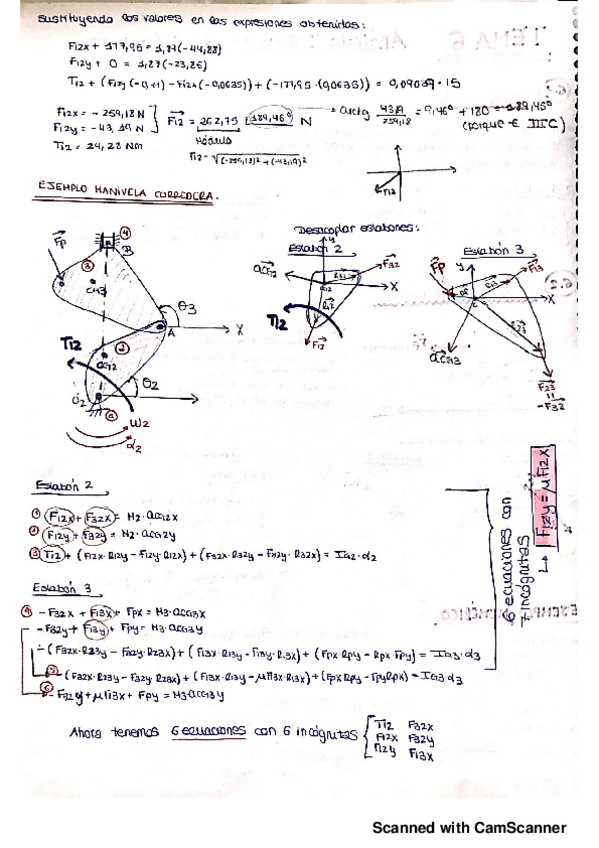 sustituyendo los valores en las expresiones obtenidas:
F12x + 177,95 = 1,87(-44,88)
F12y + 0 = 1,87(-23,25)
T12 + (F12y(-0,41) - F12x(-0,0635)) + (-177,95·(0,0635)) = 0,09039·15
F12x = -259,18 N
F12y = -43,19 N
T12 = 24,22 Nm
F12 = 262,75 189,46° N
módulo
F12 = √(-259,18)² + (-43,19)²
arctg 43,19 / 259,18 = 9,46° + 180 = 189,46°
(porque ∈ IIIC)
EJEMPLO MANIVELA CORREDERA.
Desacoplar eslabones:
Eslabón 2
Eslabón 3
FP
4
B
3
CG3
θ3
A
X
T12
2
θ2
O2
ω2
α2
y
F32
X
T12
F12
FP
y
F13
X
F23
-F32
Eslabón 2
① F12x + F32x = M2·aG2x
② F12y + F32y = M2·aG2y
③ T12 + (F12x·R12y - F12y·R12x) + (F32x·R32y - F32y·R32x) = IG2·α2
Eslabón 3
④ -F32x + F13x + FPx = M3·aG3x
-F32y + F13y + FPy = M3·aG3y
-(F32x·R23y - F32y·R23x) + (F13x·R13y - F13y·R13x) + (FPx·RPy - RPx·FPy) = IG3·α3
⑤ -(F32x·R23y - F32y·R23x) + (F13x·R13y - μF13x·R13x) + (FPx·RPy - FPy·RPx) = IG3·α3
⑥ -F32y + μF13x + FPy = M3·aG3y
6 ecuaciones con
7 incógnitas
Ahora tenemos 6 ecuaciones con 6 incógnitas
T12 F32x
F12x F32y
F12y F13x
Scanned with CamScanner